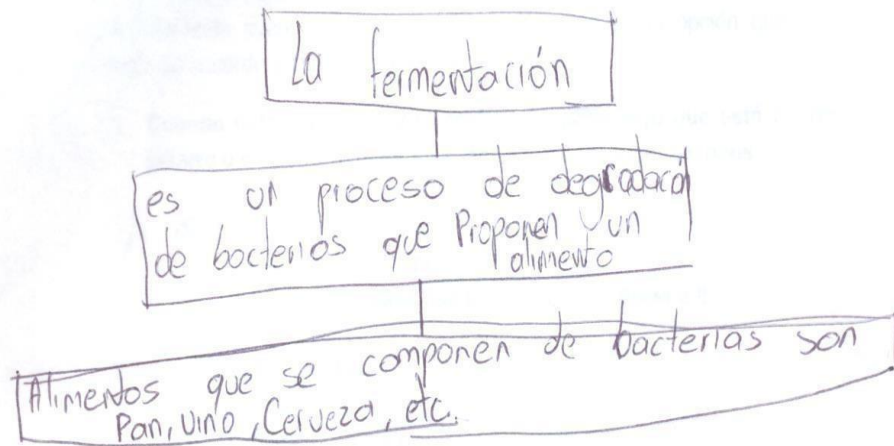 La fermentación
es un proceso de degradacón
de bacterias que Proponen un
alimento
Alimentos que se componen de bacterias son
Pan, vino, Cerveza, etc.